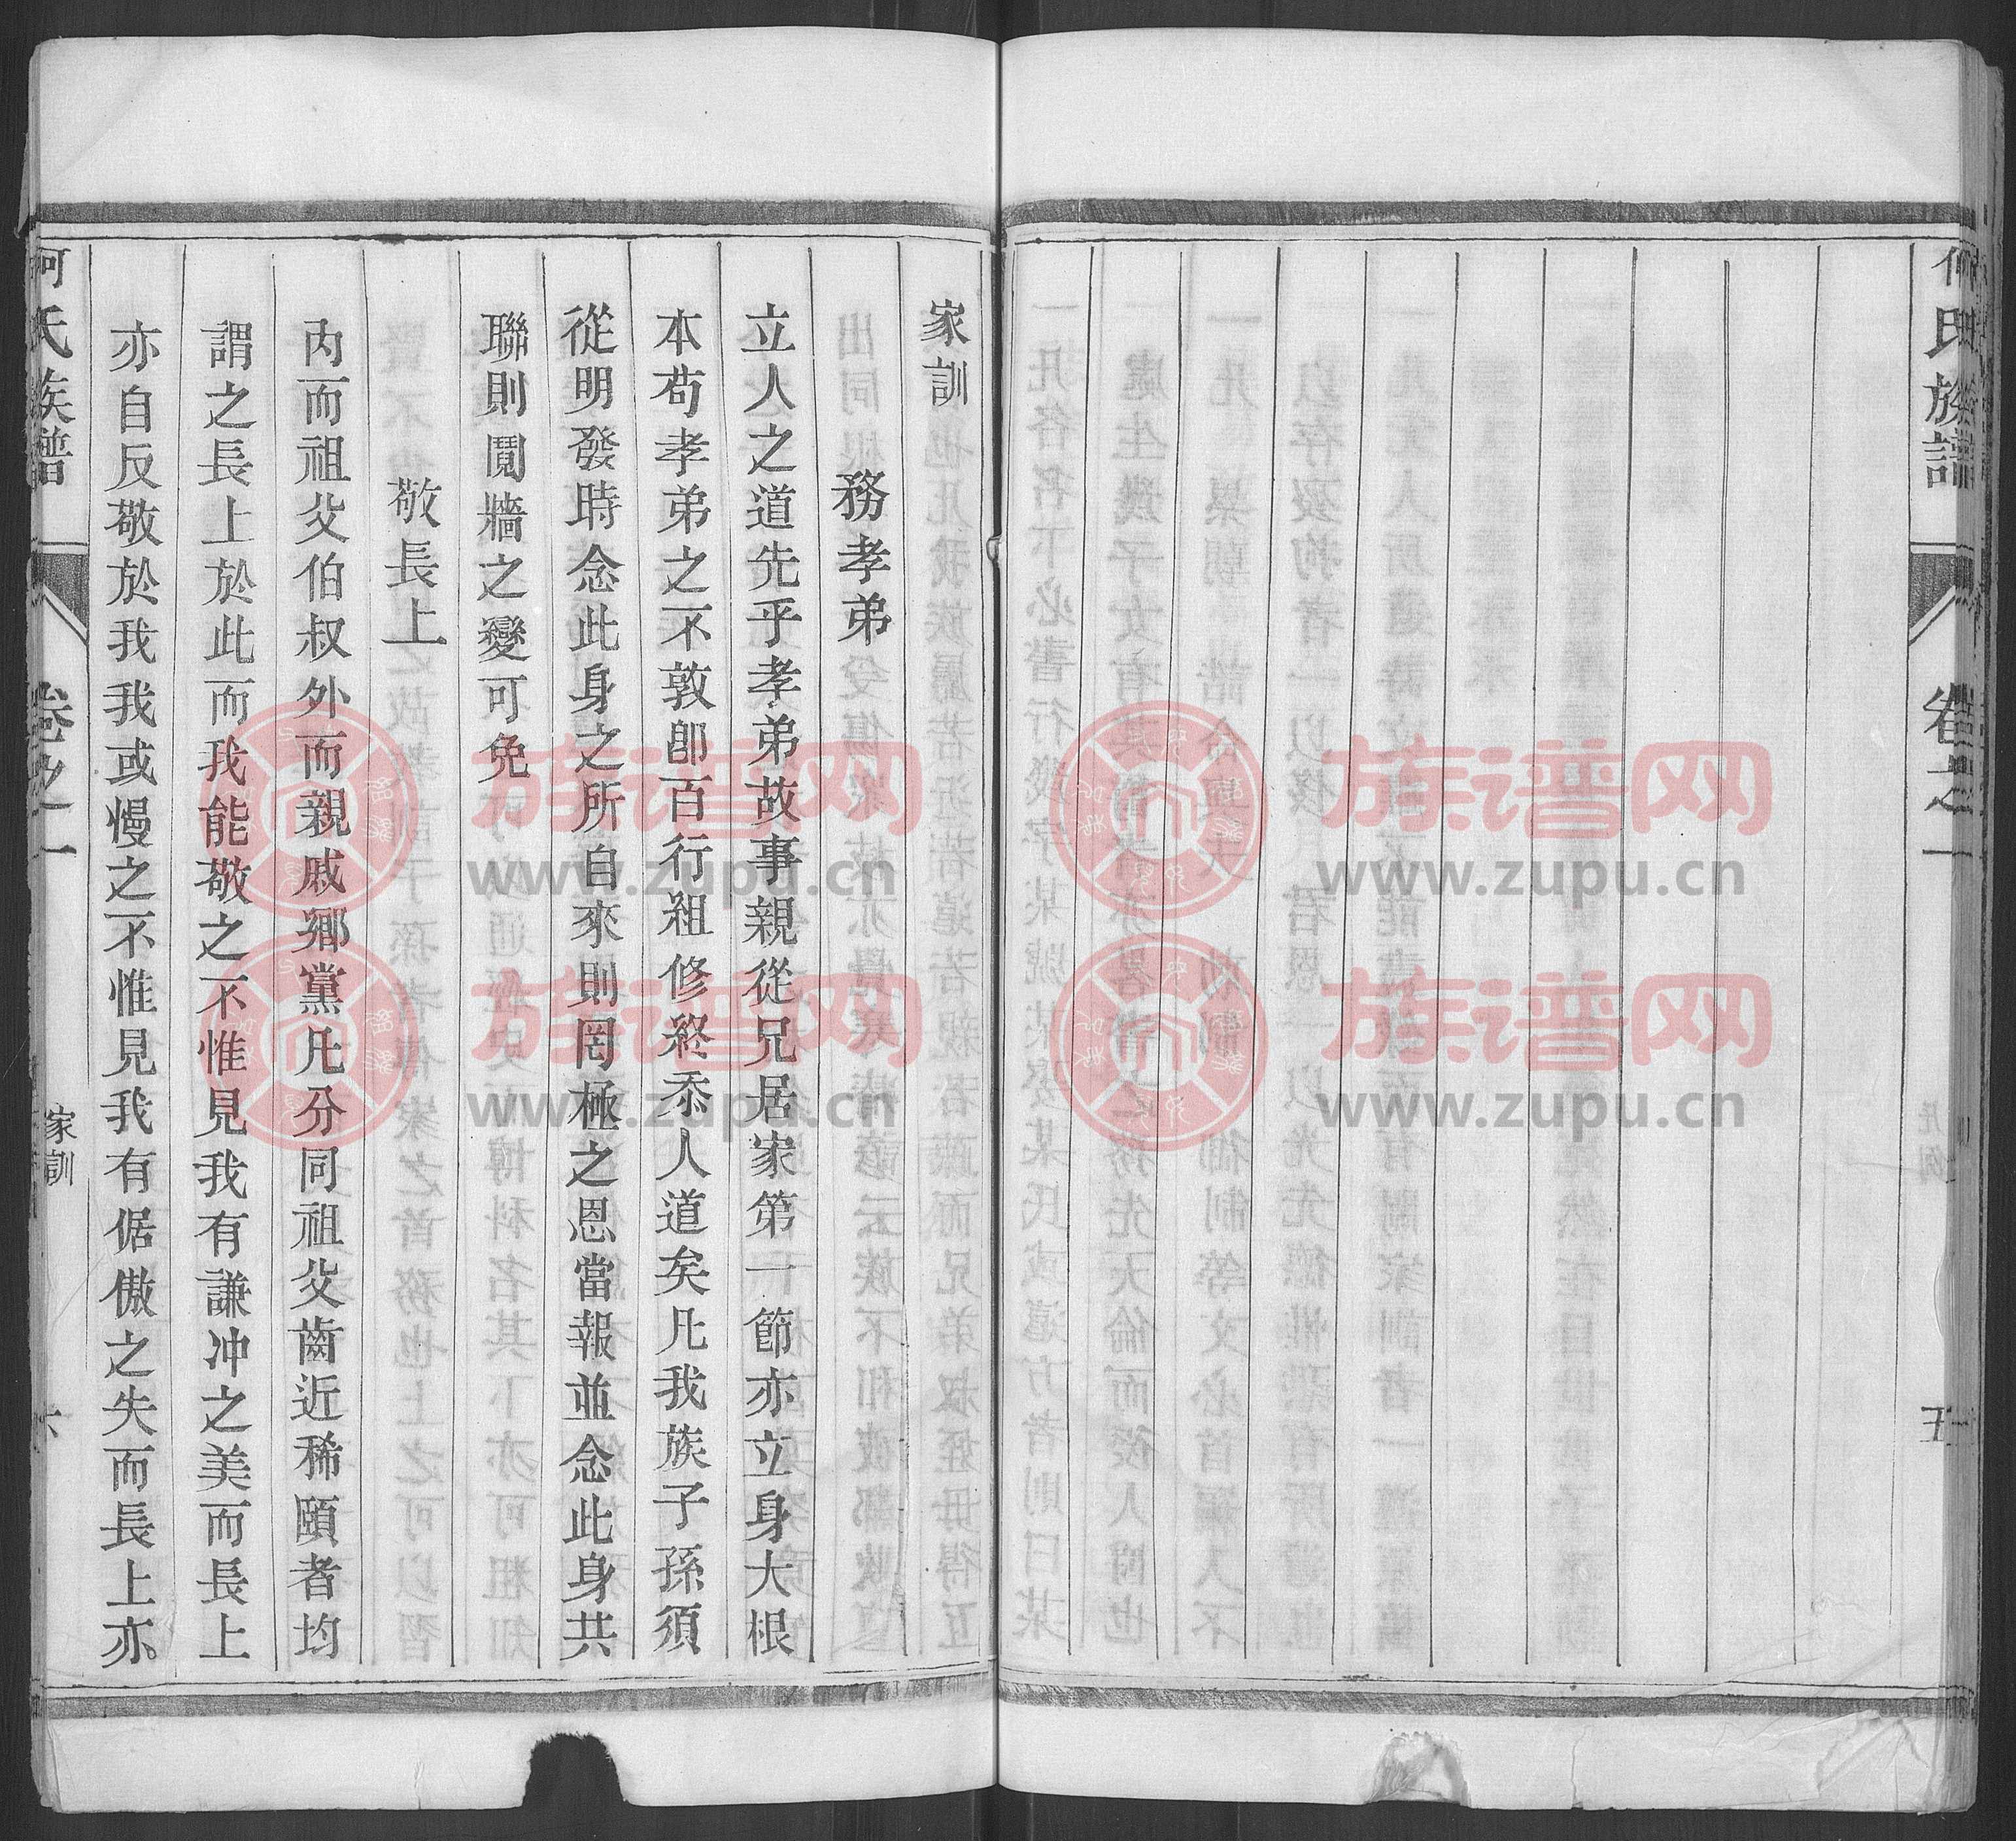 氏族譜
卷之一
五
家訓
務孝弟
立人之道先乎孝弟故事親從兄居家第一節亦立身大根
本苟孝弟之不敦卽百行祖修終忝人道矣凡我族子孫須
從明發時念此身之所自來則罔極之恩當報並念此身共
聯則鬩牆之變可免
敬長上
內而祖父伯叔外而親戚鄉黨凡分同祖父齒近稀頤者均
謂之長上於此而我能敬之不惟見我有謙冲之美而長上
亦自反敬於我我或慢之不惟見我有倨傲之失而長上亦
何氏族譜
卷之一
家訓
六
族谱网
www.zupu.cn
族谱网
www.zupu.cn
族谱网
www.zupu.cn
族谱网
www.zupu.cn